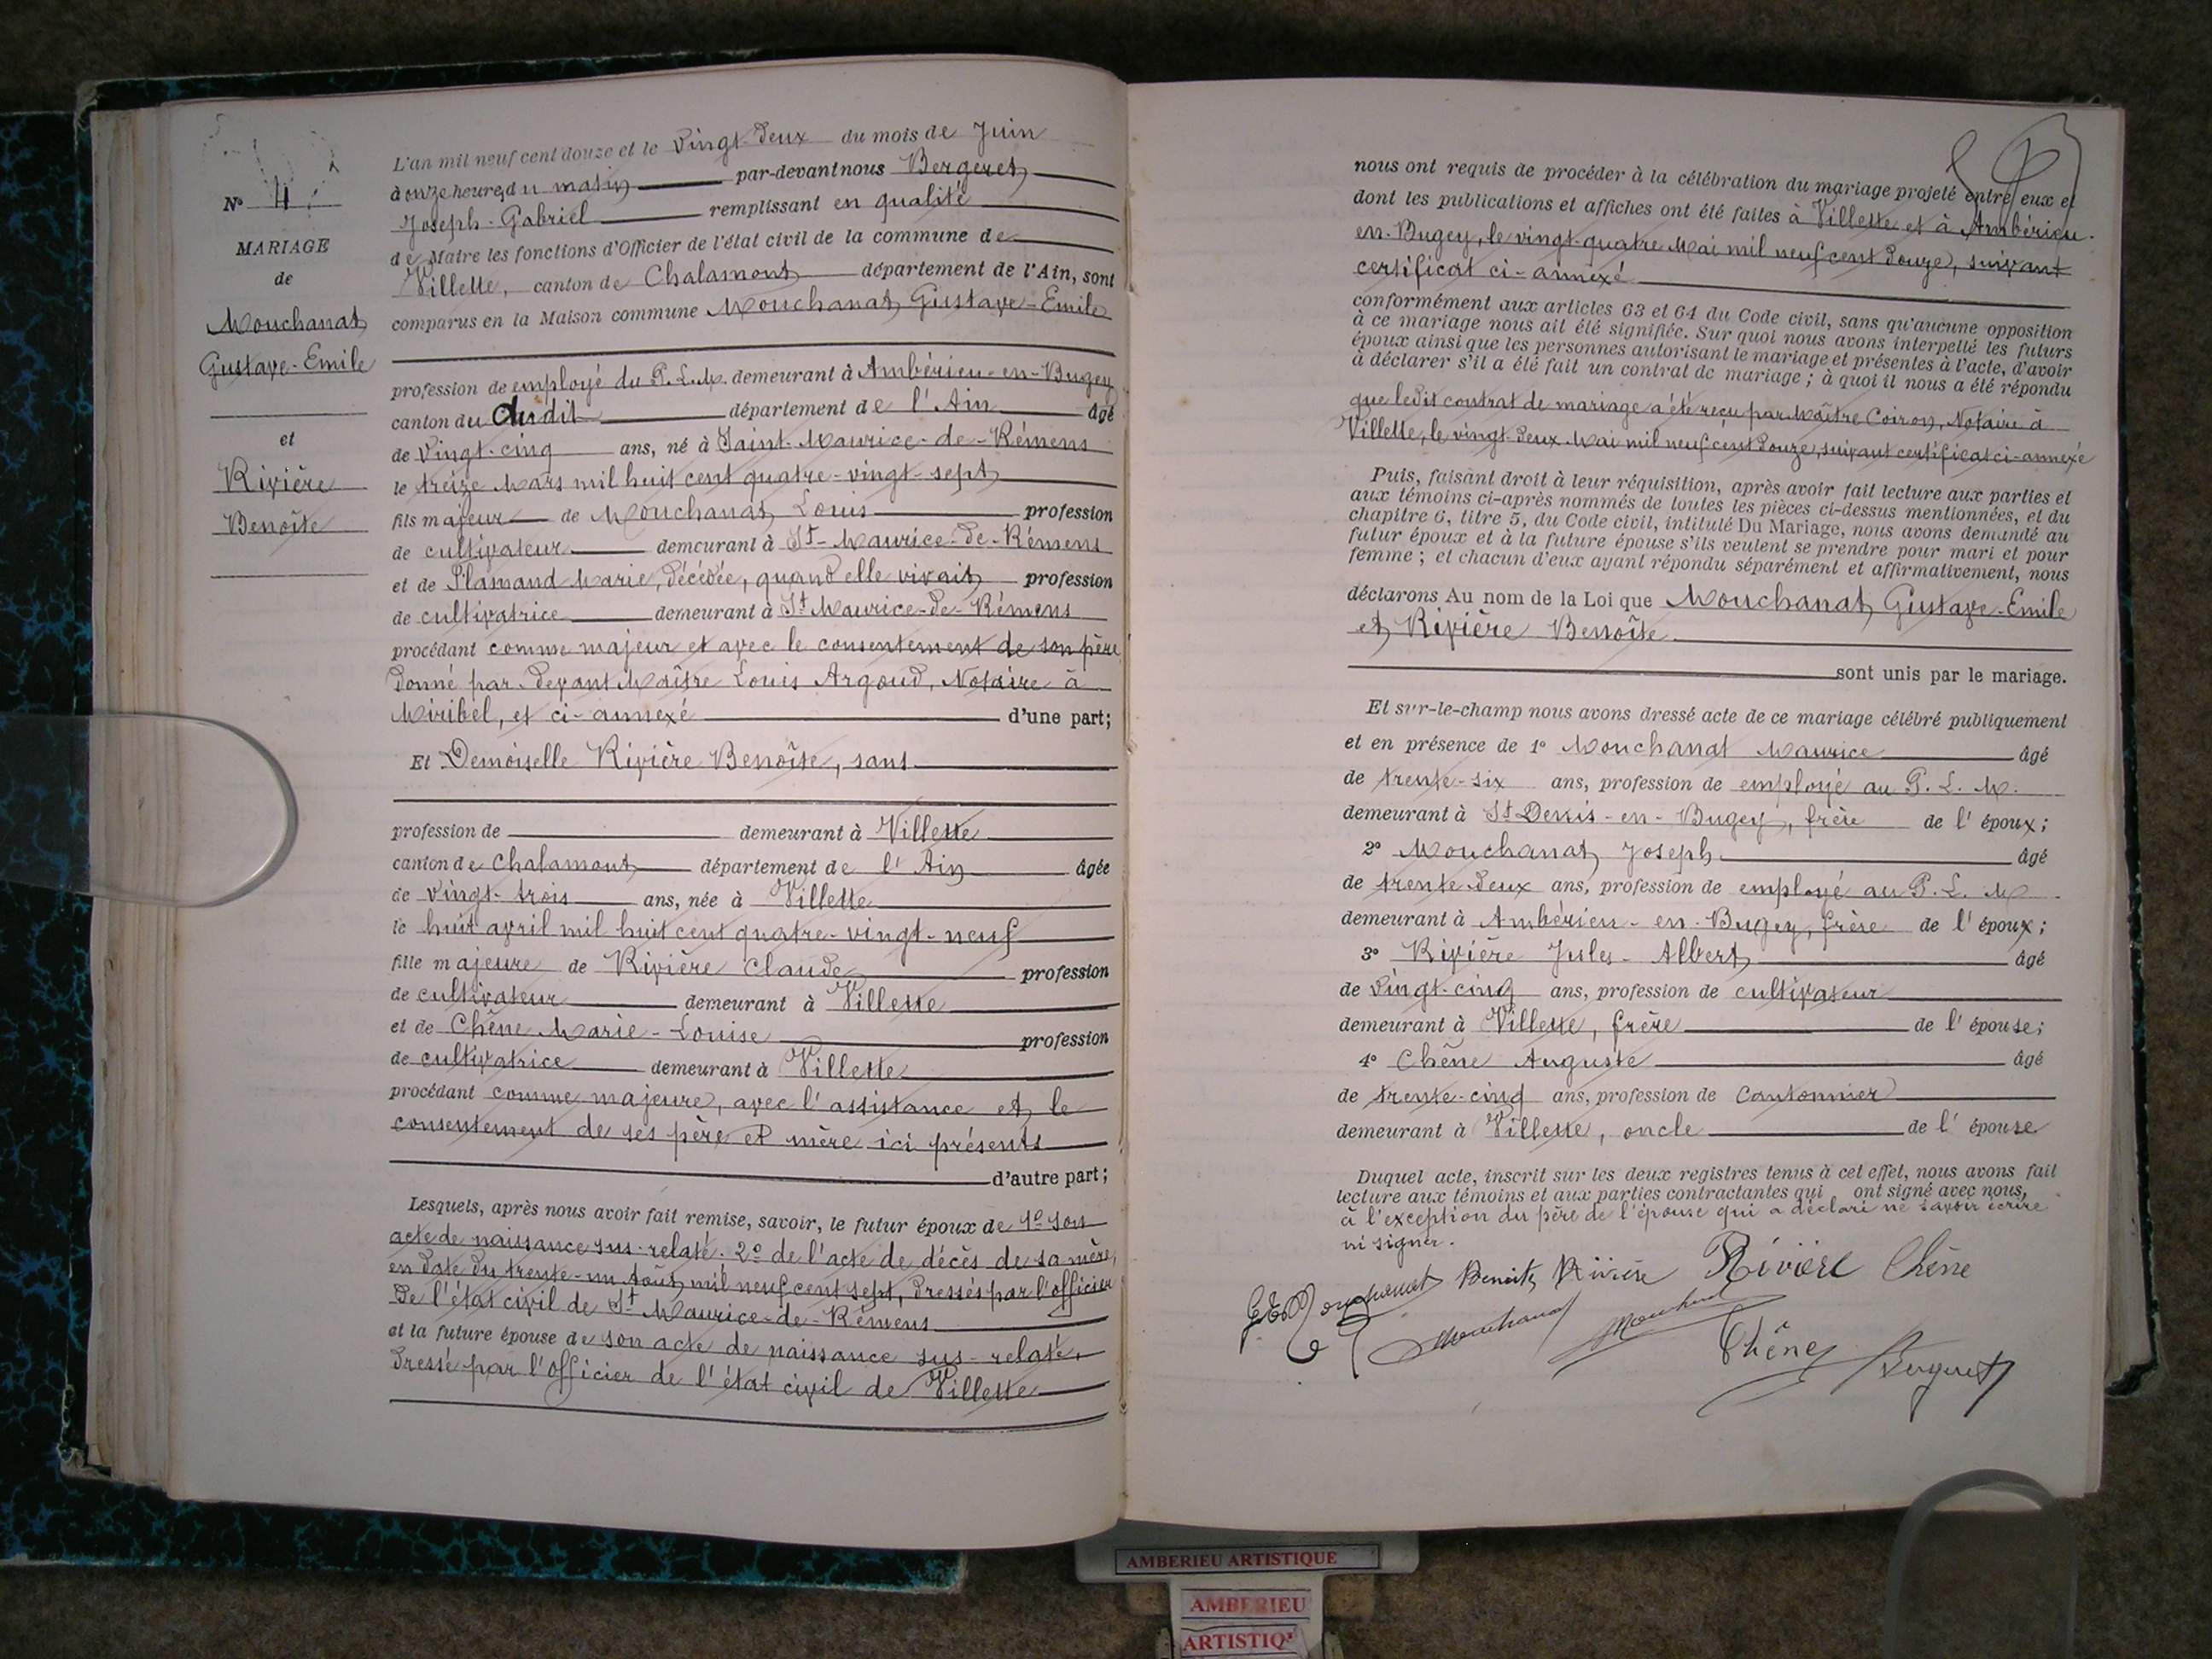 L'an mil neuf cent douze et le vingt-deux du mois de Juin
à onze heures du matin par-devant nous Bergeret
Joseph-Gabriel remplissant en qualité
de Maire les fonctions d'Officier de l'état civil de la commune de
Villette, canton de Chalamont département de l'Ain, sont
comparus en la Maison commune Mouchanat Gustave-Emile
profession de employé du P.L.M. demeurant à Ambérieu-en-Bugey
canton du dudit département de l'Ain âgé
de vingt-cinq ans, né à Saint-Maurice-de-Rémens
le treize Mars mil huit cent quatre-vingt-sept
fils majeur de Mouchanat Louis profession
de cultivateur demeurant à St-Maurice-de-Rémens
et de Plamand Marie, décédée, quand elle vivait profession
de cultivatrice demeurant à St Maurice-de-Rémens
procédant comme majeur et avec le consentement de son père
donné par-devant Maître Louis Argoud, Notaire à
Miribel, et ci-annexé d'une part;
Et Demoiselle Rivière Benoîte, sans
profession de demeurant à Villette
canton de Chalamont département de l'Ain âgée
de vingt-trois ans, née à Villette
le huit avril mil huit cent quatre-vingt-neuf
fille majeure de Rivière Claude profession
de cultivateur demeurant à Villette
et de Chêne Marie-Louise profession
de cultivatrice demeurant à Villette
procédant comme majeure, avec l'assistance et le
consentement de ses père et mère ici présents
d'autre part;
Lesquels, après nous avoir fait remise, savoir, le futur époux de 1º son
acte de naissance sus-relaté. 2º de l'acte de décès de sa mère,
en date du trente-un Août mil neuf cent sept, dressés par l'officier
de l'état civil de St Maurice-de-Rémens
et la future épouse de son acte de naissance sus-relaté,
dressé par l'officier de l'état civil de Villette
Nº 4
MARIAGE
de
Mouchanat
Gustave-Emile
et
Rivière
Benoîte
nous ont requis de procéder à la célébration du mariage projeté entre eux et
dont les publications et affiches ont été faites à Villette et à Ambérieu-
en-Bugey, le vingt-quatre Mai mil neuf cent douze, suivant
certificat ci-annexé
conformément aux articles 63 et 64 du Code civil, sans qu'aucune opposition
à ce mariage nous ait été signifiée. Sur quoi nous avons interpellé les futurs
époux ainsi que les personnes autorisant le mariage et présentes à l'acte, d'avoir
à déclarer s'il a été fait un contrat de mariage; à quoi il nous a été répondu
que ledit contrat de mariage a été reçu par Maître Coiron, Notaire à
Villette, le vingt-deux Mai mil neuf cent douze, suivant certificat ci-annexé
Puis, faisant droit à leur réquisition, après avoir fait lecture aux parties et
aux témoins ci-après nommés de toutes les pièces ci-dessus mentionnées, et du
chapitre 6, titre 5, du Code civil, intitulé Du Mariage, nous avons demandé au
futur époux et à la future épouse s'ils veulent se prendre pour mari et pour
femme; et chacun d'eux ayant répondu séparément et affirmativement, nous
déclarons Au nom de la Loi que Mouchanat Gustave-Emile
et Rivière Benoîte
sont unis par le mariage.
Et sur-le-champ nous avons dressé acte de ce mariage célébré publiquement
et en présence de 1º Mouchanat Maurice âgé
de trente-six ans, profession de employé au P.L.M.
demeurant à St Denis-en-Bugey, frère de l'époux;
2º Mouchanat Joseph âgé
de trente deux ans, profession de employé au P.L.M
demeurant à Ambérieu-en-Bugey, frère de l'époux;
3º Rivière Jules-Albert âgé
de vingt-cinq ans, profession de cultivateur
demeurant à Villette, frère de l'épouse;
4º Chêne Auguste âgé
de trente-cinq ans, profession de Cantonnier
demeurant à Villette, oncle de l'épouse
Duquel acte, inscrit sur les deux registres tenus à cet effet, nous avons fait
lecture aux témoins et aux parties contractantes qui ont signé avec nous,
à l'exception du père de l'épouse qui a déclaré ne savoir écrire
ni signer.
G E Mouchanat Benoite Rivière Rivière Chêne
Mouchanat Mouchanat Chêne Bergeret
AMBERIEU ARTISTIQUE
AMBERIEU
ARTISTIQ